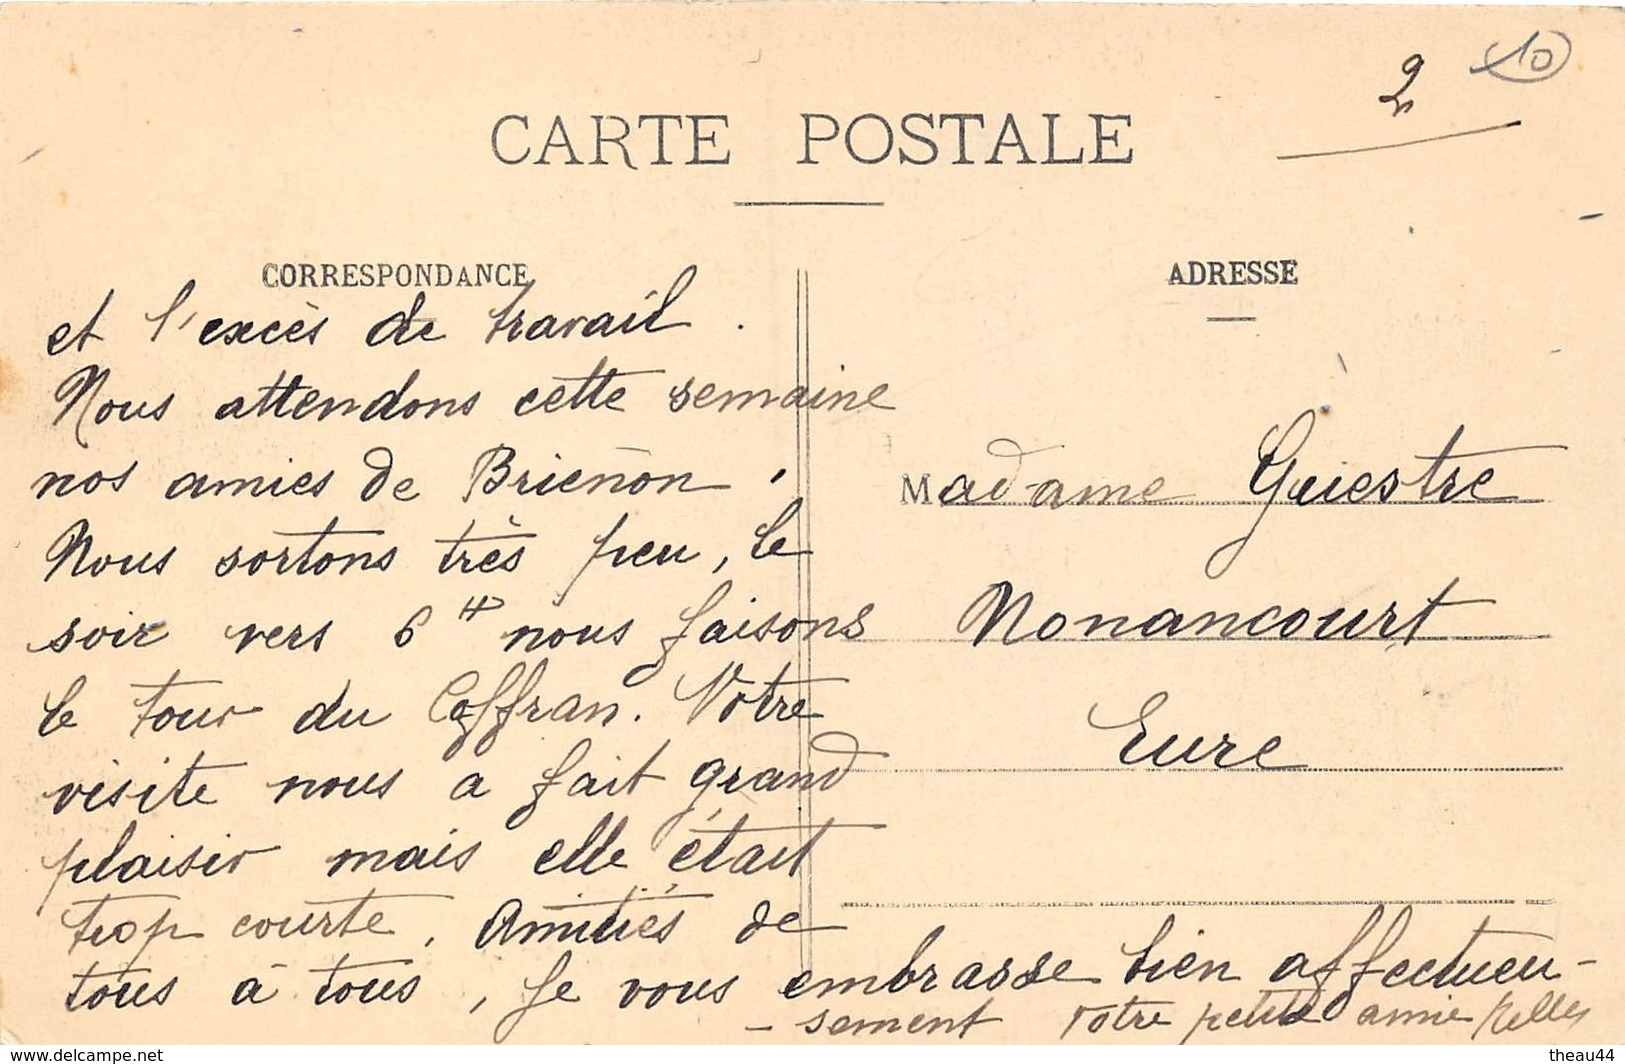 2 10
CARTE POSTALE
CORRESPONDANCE
et l'excès de travail.
Nous attendons cette semaine
nos amies de Brienon.
Nous sortons très peu, le
soir vers 6 H nous faisons
le tour du Coffran. Votre
visite nous a fait grand
plaisir mais elle était
trop courte. Amitiés de
tous à tous, Je vous embrasse bien affectueu-
-sement votre petite amie
ADRESSE
Madame Guiestre
Nonancourt
Eure
theau44